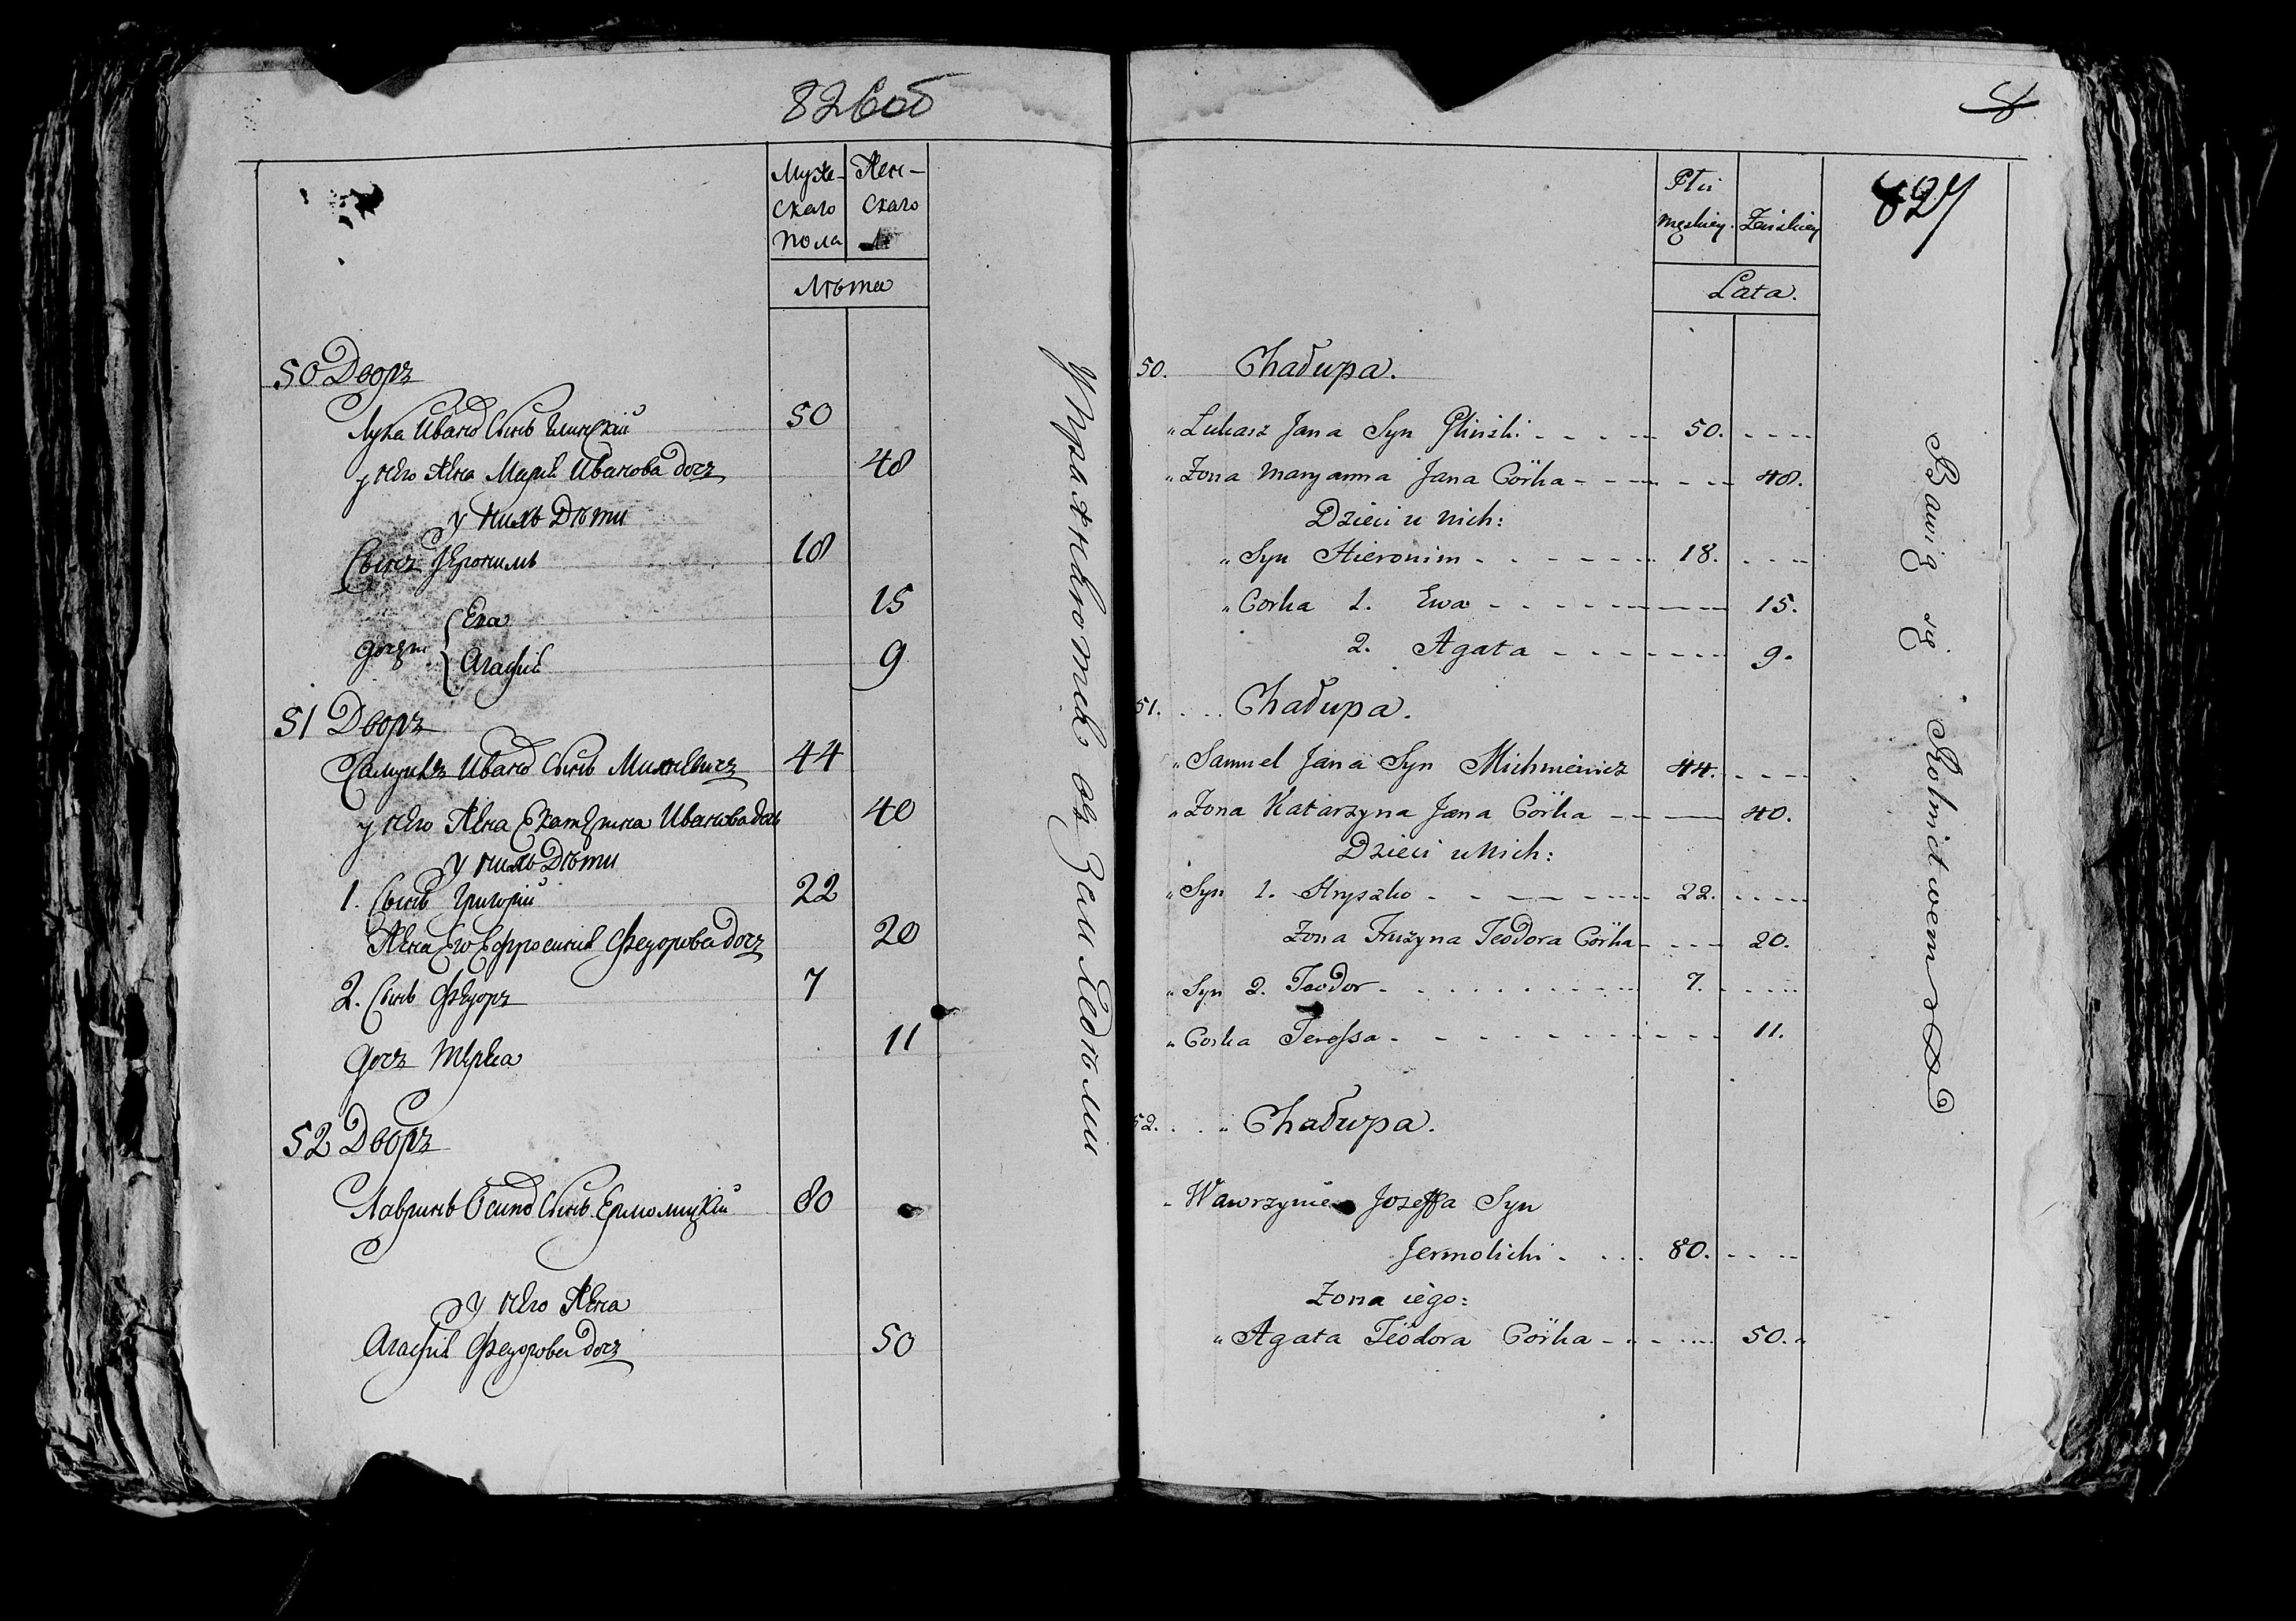 826об
Муже- Жен-
скаго скаго
пола
Лѣта
50 Дворъ
Лука Иванов Сынъ Глинскій 50
у него Жена Марія Иванова дочь 48
У нихъ Дѣти
Сынъ Іеронимъ 18
дочери { Ева 15
Агафія 9
51 Дворъ
Самуилъ Иванов Сынъ Михневичъ 44
у него Жена Екатерина Иванова дочь 40
У нихъ Дѣти
1. Сынъ Григорій 22
Жена Его Ефросинія Федорова дочь 20
2. Сынъ Федоръ 7
дочь Тереса 11
52 Дворъ
Лавринъ Осипов Сынъ Ермолицкій 80
У него Жена
Агафія Федорова дочь 50
Упражняются въ Земледѣліи
8
827
Płci
męskiey. Żeńskiey
Lata.
50. Chałupa.
" Łukasz Jana Syn Gliński 50.
" Żona Maryanna Jana Córka 48.
Dzieci u Nich:
" Syn Hieronim 18.
" Corka 1. Ewa 15.
2. Agata 9.
51. Chałupa.
" Samuel Jana Syn Michniewicz 44.
" Żona Katarzyna Jana Córka 40.
Dzieci u Nich:
" Syn 1. Hryszko 22.
Żona Fruzyna Teodora Córka 20.
" Syn 2. Teodor 7.
" Corka Teressa 11.
52. " Chałupa.
Wawrzyniec Jozeffa Syn
Jermolicki 80.
Żona iego:
" Agata Teodora Córka 50.
Bawią się Rolnictwem